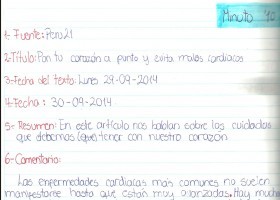 Minuto 90
1- Fuente: Perú 21
2- Título: Pon tu corazón a punto y evita males cardiacos
3- Fecha del texto: Lunes 29-09-2014
4- Fecha: 30-09-2014
5- Resumen: En este artículo nos hablan sobre los cuidados
que debemos (que) tener con nuestro corazón.
6- Comentario:
Las enfermedades cardiacas más comunes no suelen
manifestarse hasta que están muy avanzadas. Hay much